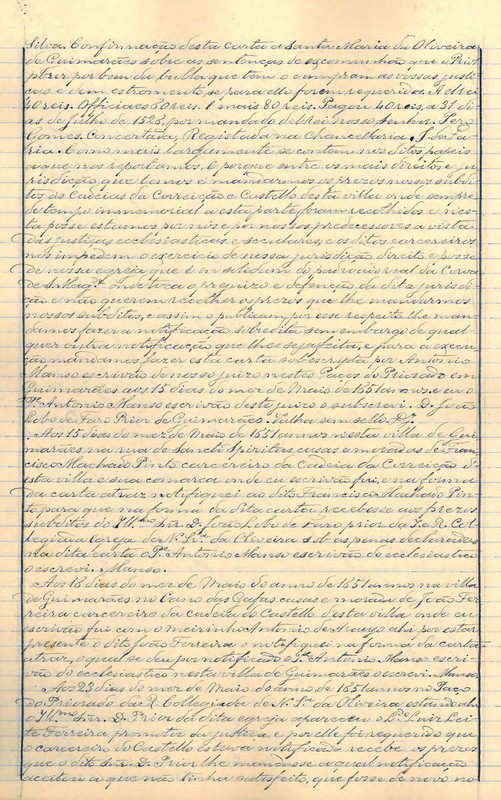 Silva. Confirmação desta carta a Santa Maria da Oliveira
de Guimarães sobre as sentenças de excomunhão que o Prior
pozer por bem da bulla que tem o cumpram as vossas justi-
ças e dem estromento se para ello forem requeridos. A elrei
40 reis. Officiaes 80 reis. E mais 80 reis. Pagou 40 reis, a 31 di-
as de julho de 1528, por mandado delrei nosso senhor. Pero
Gomes. Concertada, Registada na Chancellaria,
ria. E como mais largamente se contem nos ditos papeis
a que nos reportamos. E porque entre os mais direitos e ju-
risdicção que temos é mandarmos os prezos nossos subdi-
tos ás Cadeias da Correição e Castello desta villa onde sempre
de tempo immemorial a esta parte foram recolhidos e nes-
ta posse estamos por nós e por nossos predecessores a vista
das justiças ecclesiasticas e seculares, e os ditos carcereiros
nos impedem o exercicio de nossa jurisdicção direito e posse
de nossa egreja que é in solidum do padroado real da Coroa
de S. Mag.e onde toca o prejuizo e defenção da dita jurisdic-
ção e não querem recolher os prezos que lhe mandarmos
nossos subditos, e assim o publicam, por esse respeito lhe man-
damos fazer a notificação sobredita sem embargo de qual
quer outra notificação que lhes seja feita, e para a execu-
ção mandamos fazer esta carta sobscripta por Antonio
Manso escrivão de nosso juizo nestes Paços do Priorado em
Guimarães aos 15 dias do mez de Maio de 1651 annos. e eu o
P.e Antonio Manso escrivão deste juizo o subscrevi. D. João
Lobo de Faro Prior de Guimarães. Valha sem sello
Aos 15 dias do mez de Maio de 1651 annos nesta villa de Gui-
marães na rua de Sancti Spiritus casas e moradas de Fran-
cisco Machado Pinto carcereiro da Cadeia da Correcção d'
esta villa e sua comarca onde eu escrivão fui, e na forma
da carta atraz notifiquei ao dito Francisco Machado Pin-
to para que na forma da dita carta recebesse aos prezos
subditos do Ill.mo Snr. D. João Lobo de Faro prior da I. e R. Col-
legiada Egreja de N. Sr.a da Oliveira sob as penas declaradas
na dita carta. P.e Antonio Manso escrivão do ecclesiastico
o escrevi. Manso.
Aos 18 dias do mez de Maio do anno de 1651 annos na villa
de Guimarães no Cano das Gafas casas e morada de João Fer-
reira carcereiro da cadeia do Castello desta villa onde eu
escrivão fui com o meirinho Antonio de Araujo ahi por estar
presente o dito João Ferreira o notifiquei na forma da carta
atraz, o qual se deu por notificado o P.e Antonio Manso escri-
vão do ecclesiastico nesta villa de Guimarães o escrevi. Manso.
Aos 23 dias do mez de Maio do anno de 1651 annos no Paço
do Priorado da R. Collegiada de N. Sr.a da Oliveira estando ahi
o Ill.mo Snr. D. Prior da dita egreja appareceu o L.do Luiz Lei-
te Ferreira promotor da justiça, e por elle foi requerido que
o carcereiro do Castello estava notificado recebe os prezos
que o dito Snr. D. Prior lhe mandasse a qual notificação
aceitou a que não tinha satisfeito, que fosse de novo no